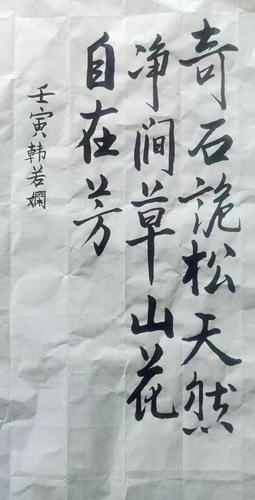 奇石詭松天然
净澗草山花
自在芳
壬寅韩若嫻